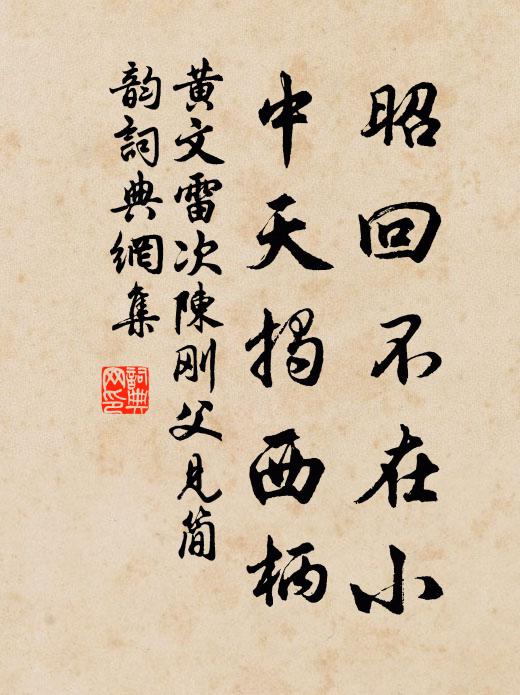 昭回不在小
中天揭西柄
黄文雷次陳刚父見簡
韵詞典網集
詞典
网印